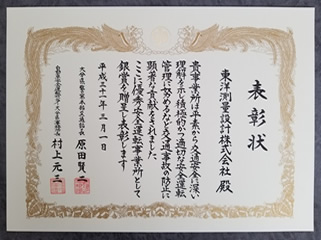 表彰状
東洋測量設計株式会社 殿
貴事業所は平素から交通安全に深い
理解を示し積極的かつ適切な安全運転
管理に努めるなど交通事故の防止に
顕著な貢献をされました
ここに優秀安全運転事業所として
銀賞を贈呈し表彰します
平成三十一年三月一日
大分県警察本部交通部長 原田賢二
自動車安全運転センター大分県事務所長 村上元三